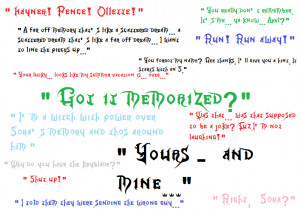 " Hayner! Pence! Ollette! "
" A far off memory that's like a scattered dream... a
scattered dream that's like a far off dream... I want
to line the pieces up...
" You really don't remember?
It's me... ya know... Axel? "
" Run! Run away! "
" You forgot my name? Gee thanks. I'll give you a hint. It
starts with an S. "
" Your lucky... looks like my summer vacation is... over... "
" Got it memorized? "
" I'm a witch with power over
Sora's memory and thos around
him "
" Was that... was that supposed
to be a joke? Cuz I'm not
laughing! "
" Why do you have the keyblade? "
" Yours - and
mine... "
" Shut up! "
" I told them they were sending the wrong guy... "
" Right, Sora? "